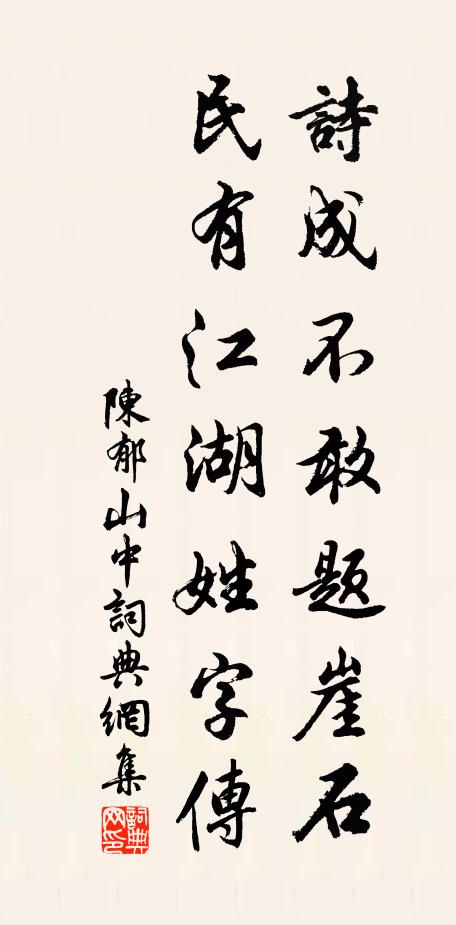 詩成不敢題崖石
民有江湖姓字傳
陳郁山中詞典網集
詞典
网印